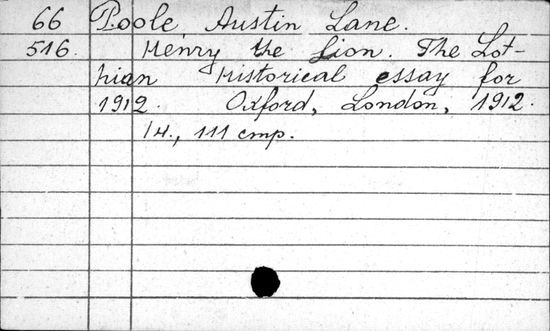 66 Poole, Austin Lane.
516. Henry the Lion. The Lot-
hian Historical essay for
1912. Oxford, London, 1912.
14., 111 cmp.